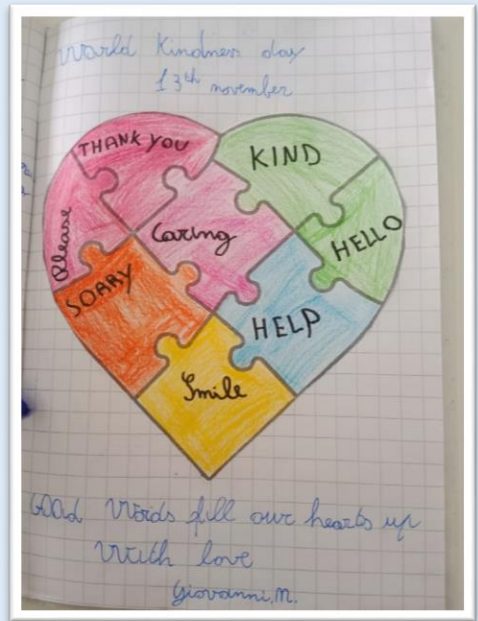 World Kindness day
13th november
THANK YOU
KIND
Please
Caring
HELLO
SORRY
HELP
Smile
GOOD Words fill our hearts up
With love
Giovanni.M.